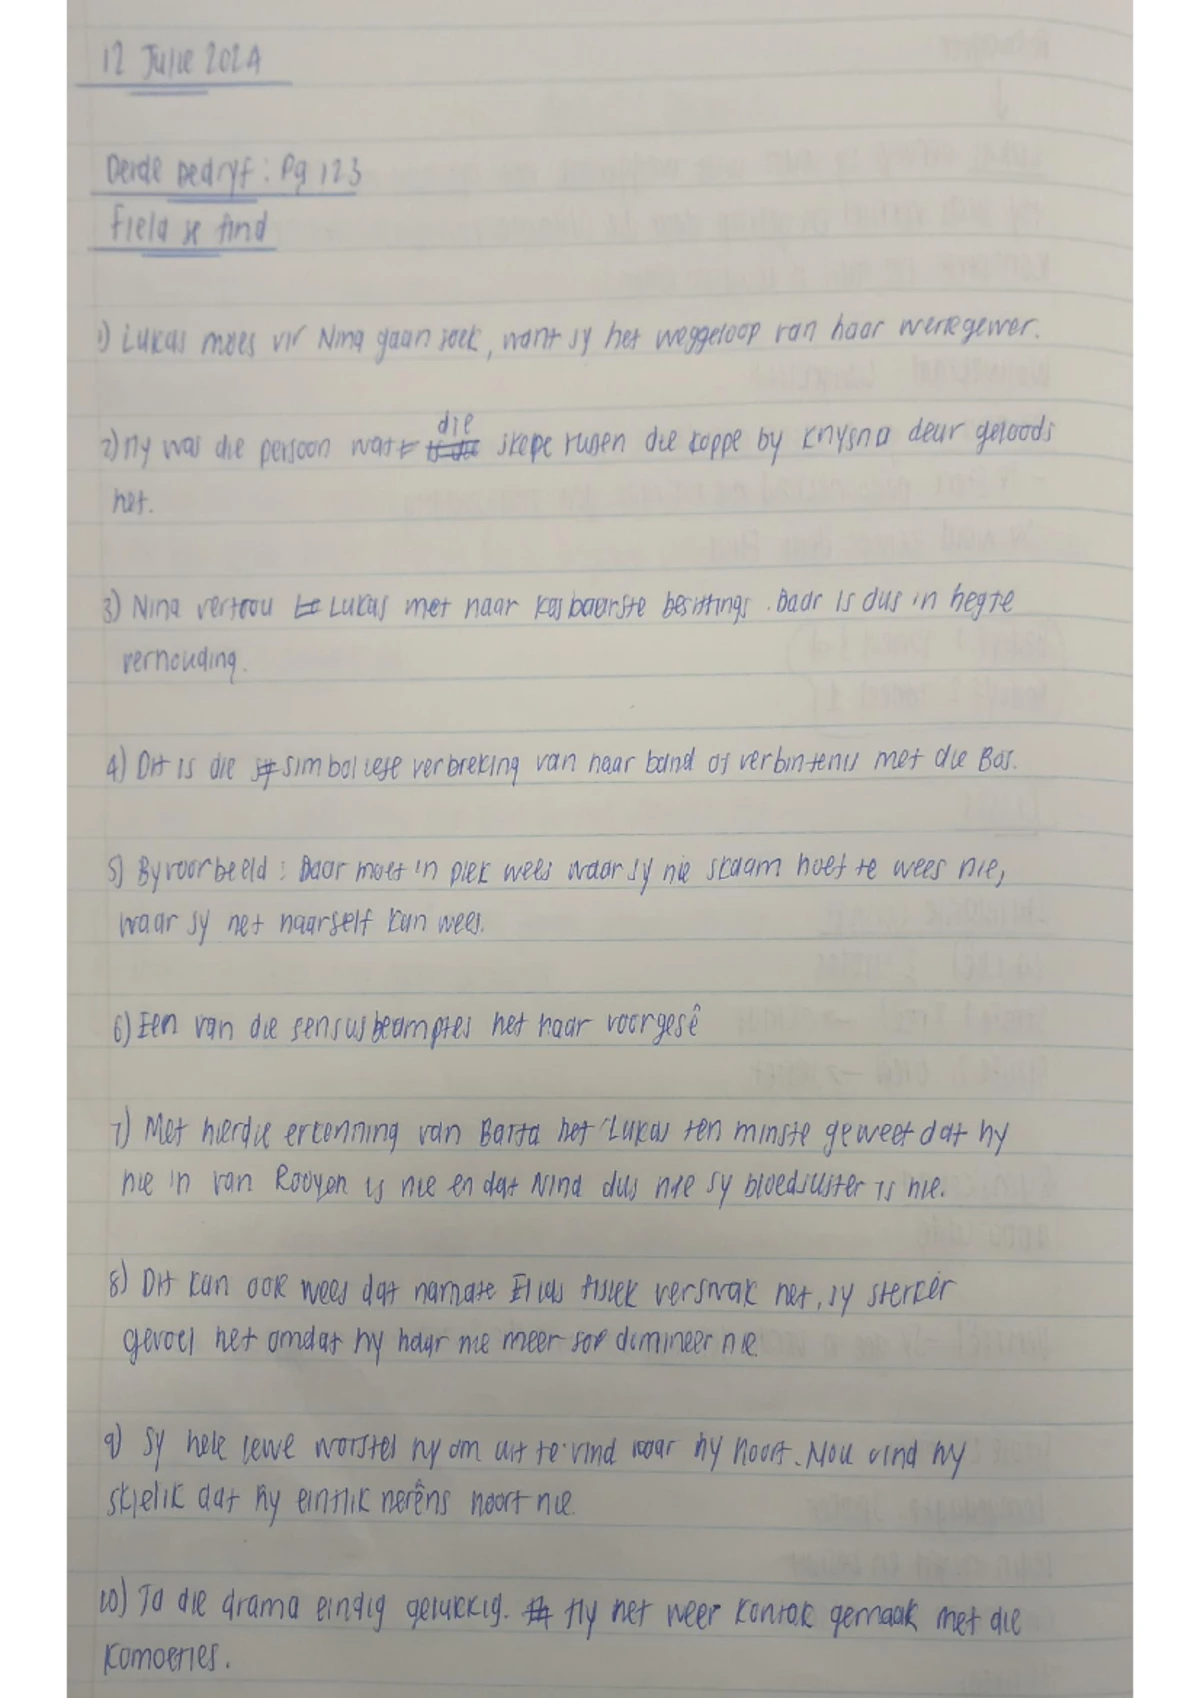 12 Julie 2024
Derde bedryf: Pg 123
Fiela se kind
1) Lukas moes vir Nina gaan soek, want sy het weggeloop van haar werkgewer.
2) Hy was die persoon wat die skepe tussen die koppe by Knysna deur geloods
het.
3) Nina vertrou Lukas met haar kosbaarste besittings. Daar is dus 'n hegte
verhouding.
4) Dit is die simboliese verbreking van haar band of verbintenis met die Bos.
5) Byvoorbeeld: Daar moet 'n plek wees waar sy nie skaam hoef te wees nie,
waar sy net haarself kan wees.
6) Een van die sensusbeamptes het haar voorgesê
7) Met hierdie erkenning van Barta het Lukas ten minste geweet dat hy
nie 'n van Rooyen is nie en dat Nina dus nie sy bloedsuster is nie.
8) Dit kan ook wees dat namate Elias fisiek verswak het, sy sterker
gevoel het omdat hy haar nie meer sop domineer nie.
9) Sy hele lewe worstel hy om uit te vind waar hy hoort. Nou vind hy
skielik dat hy eintlik nerêns hoort nie.
10) Ja die drama eindig gelukkig. Hy het weer kontak gemaak met die
Komoeties.